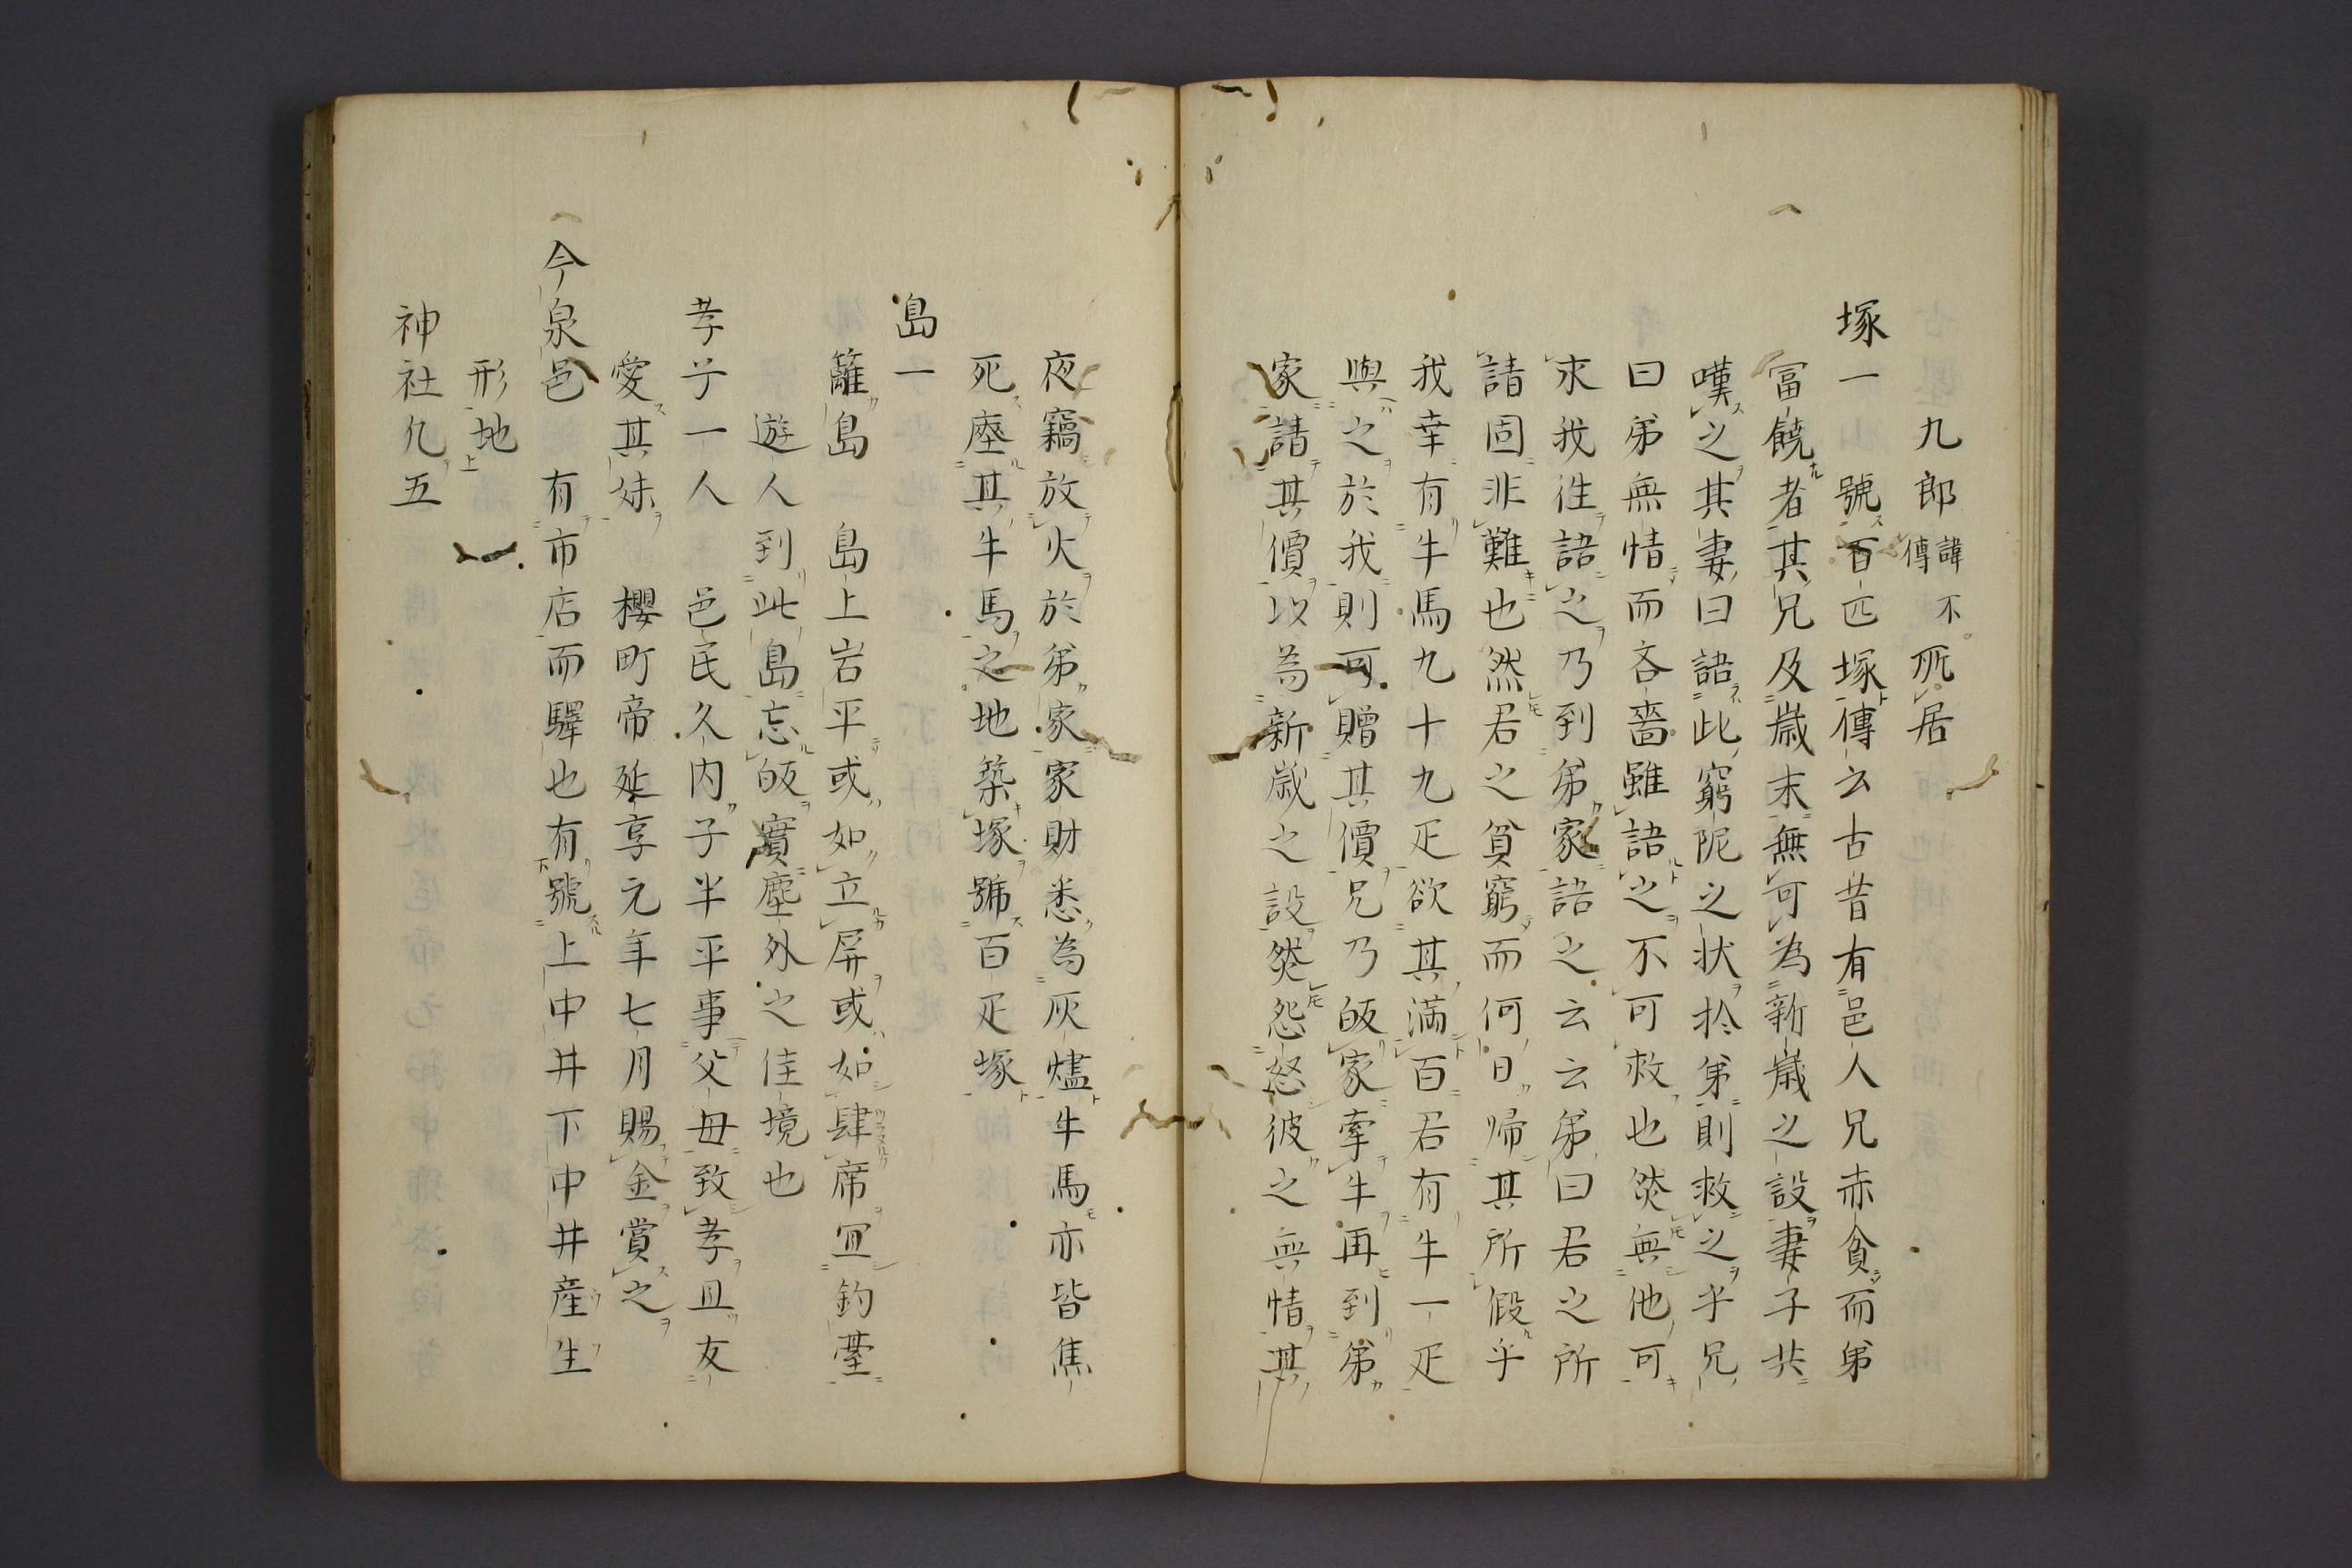 九郎諱不傳所居
塚一　號百匹塚傳云古昔有邑人兄赤貧而弟
冨饒者其兄及歳末無可為新歳之設妻子共
嘆之其妻曰語此窮阨之状於弟則救之乎兄
曰弟無情而吝嗇雖語之不可救也然無他可
求我徃語之乃到弟家語之云云弟曰君之所
請固非難也然君之貧窮而何日帰其所假乎
我幸有牛馬九十九疋欲其満百君有牛一疋
與之於我則可贈其價兄乃皈家牽牛再到弟
家請其價以為新歳之設然怨怒彼之無情其
夜竊放火於弟家家財悉為灰燼牛馬亦皆焦
死瘞其牛馬之地築塚号百疋塚
島一
籬島　島上岩平或如立屏或如肆席冝釣臺
遊人到此島忘皈實塵外之佳境也
孝子一人　邑民久内子半平事父母致孝且友
愛其妹　櫻町帝延享元年七月賜金賞之
今泉邑　有市店而驛也有號上中井下中井産生
形地
神社凢五